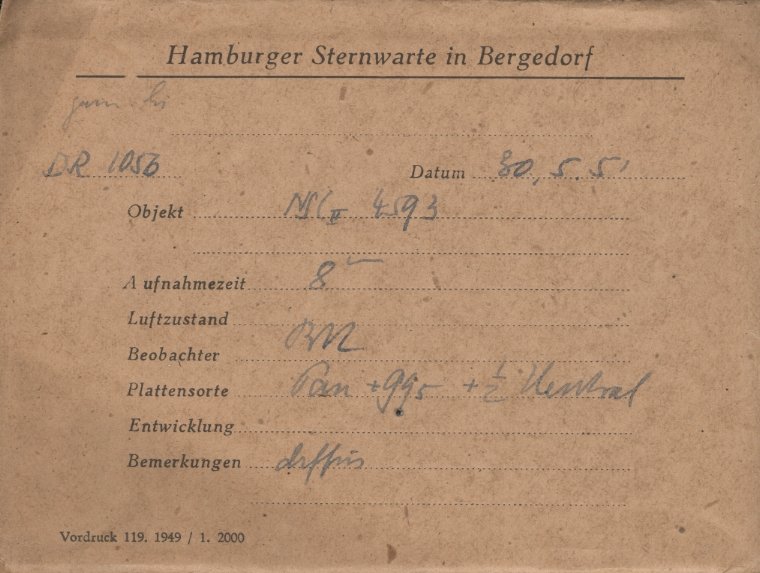 Hamburger Sternwarte in Bergedorf
DR 1056 Datum 30.5.51
Objekt 4593
Aufnahmezeit 8
Luftzustand
Beobachter
Plattensorte Pan + GG5 + ½ Neutral
Entwicklung
Bemerkungen diffus
Vordruck 119. 1949 / 1. 2000